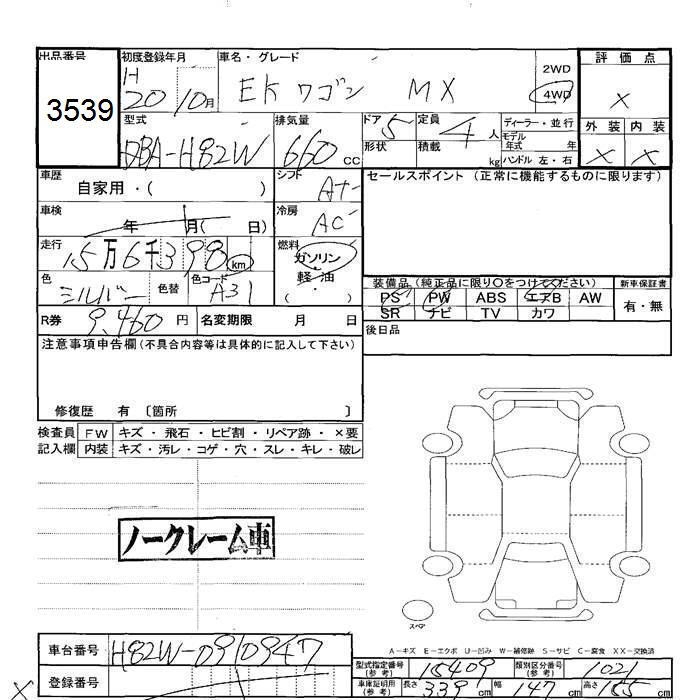 出品番号 初度登録年月 車名・グレード 評価点
3539 H 20 10月 EKワゴン MX 2WD 4WD X
型式 排気量 ドア 5 定員 4人 ディーラー・並行 外装 内装
DBA-H82W 660cc 形状 積載 kg モデル年式 年 ハンドル 左・右 X X
車歴 自家用・( ) シフト AT セールスポイント (正常に機能するものに限ります)
車検 年 月( 日) 冷房 AC
走行 15万6千398km 燃料 ガソリン 軽・油 ( ・ )
色 シルバー 色替 色コード A31 装備品 (純正品に限り○をつけてください) 新車保証書
PS PW ABS エアB AW 有・無
SR ナビ TV カワ
R券 9,460円 名変期限 月 日 後日品
注意事項申告欄(不具合内容等は具体的に記入して下さい)
修復歴 有 〔箇所 〕
検査員記入欄 FW キズ・飛石・ヒビ割・リペア跡・×要
内装 キズ・汚レ・コゲ・穴・スレ・キレ・破レ
ノークレーム車
スペア
A-キズ E-エクボ U-凹み W-補修跡 S-サビ C-腐食 XX-交換済
車台番号 H82W-0910947 型式指定番号(参考) 15409 類別区分番号(参考) 1021
登録番号 車庫証明用(参考) 長さ 339cm 幅 147cm 高さ 155cm
X